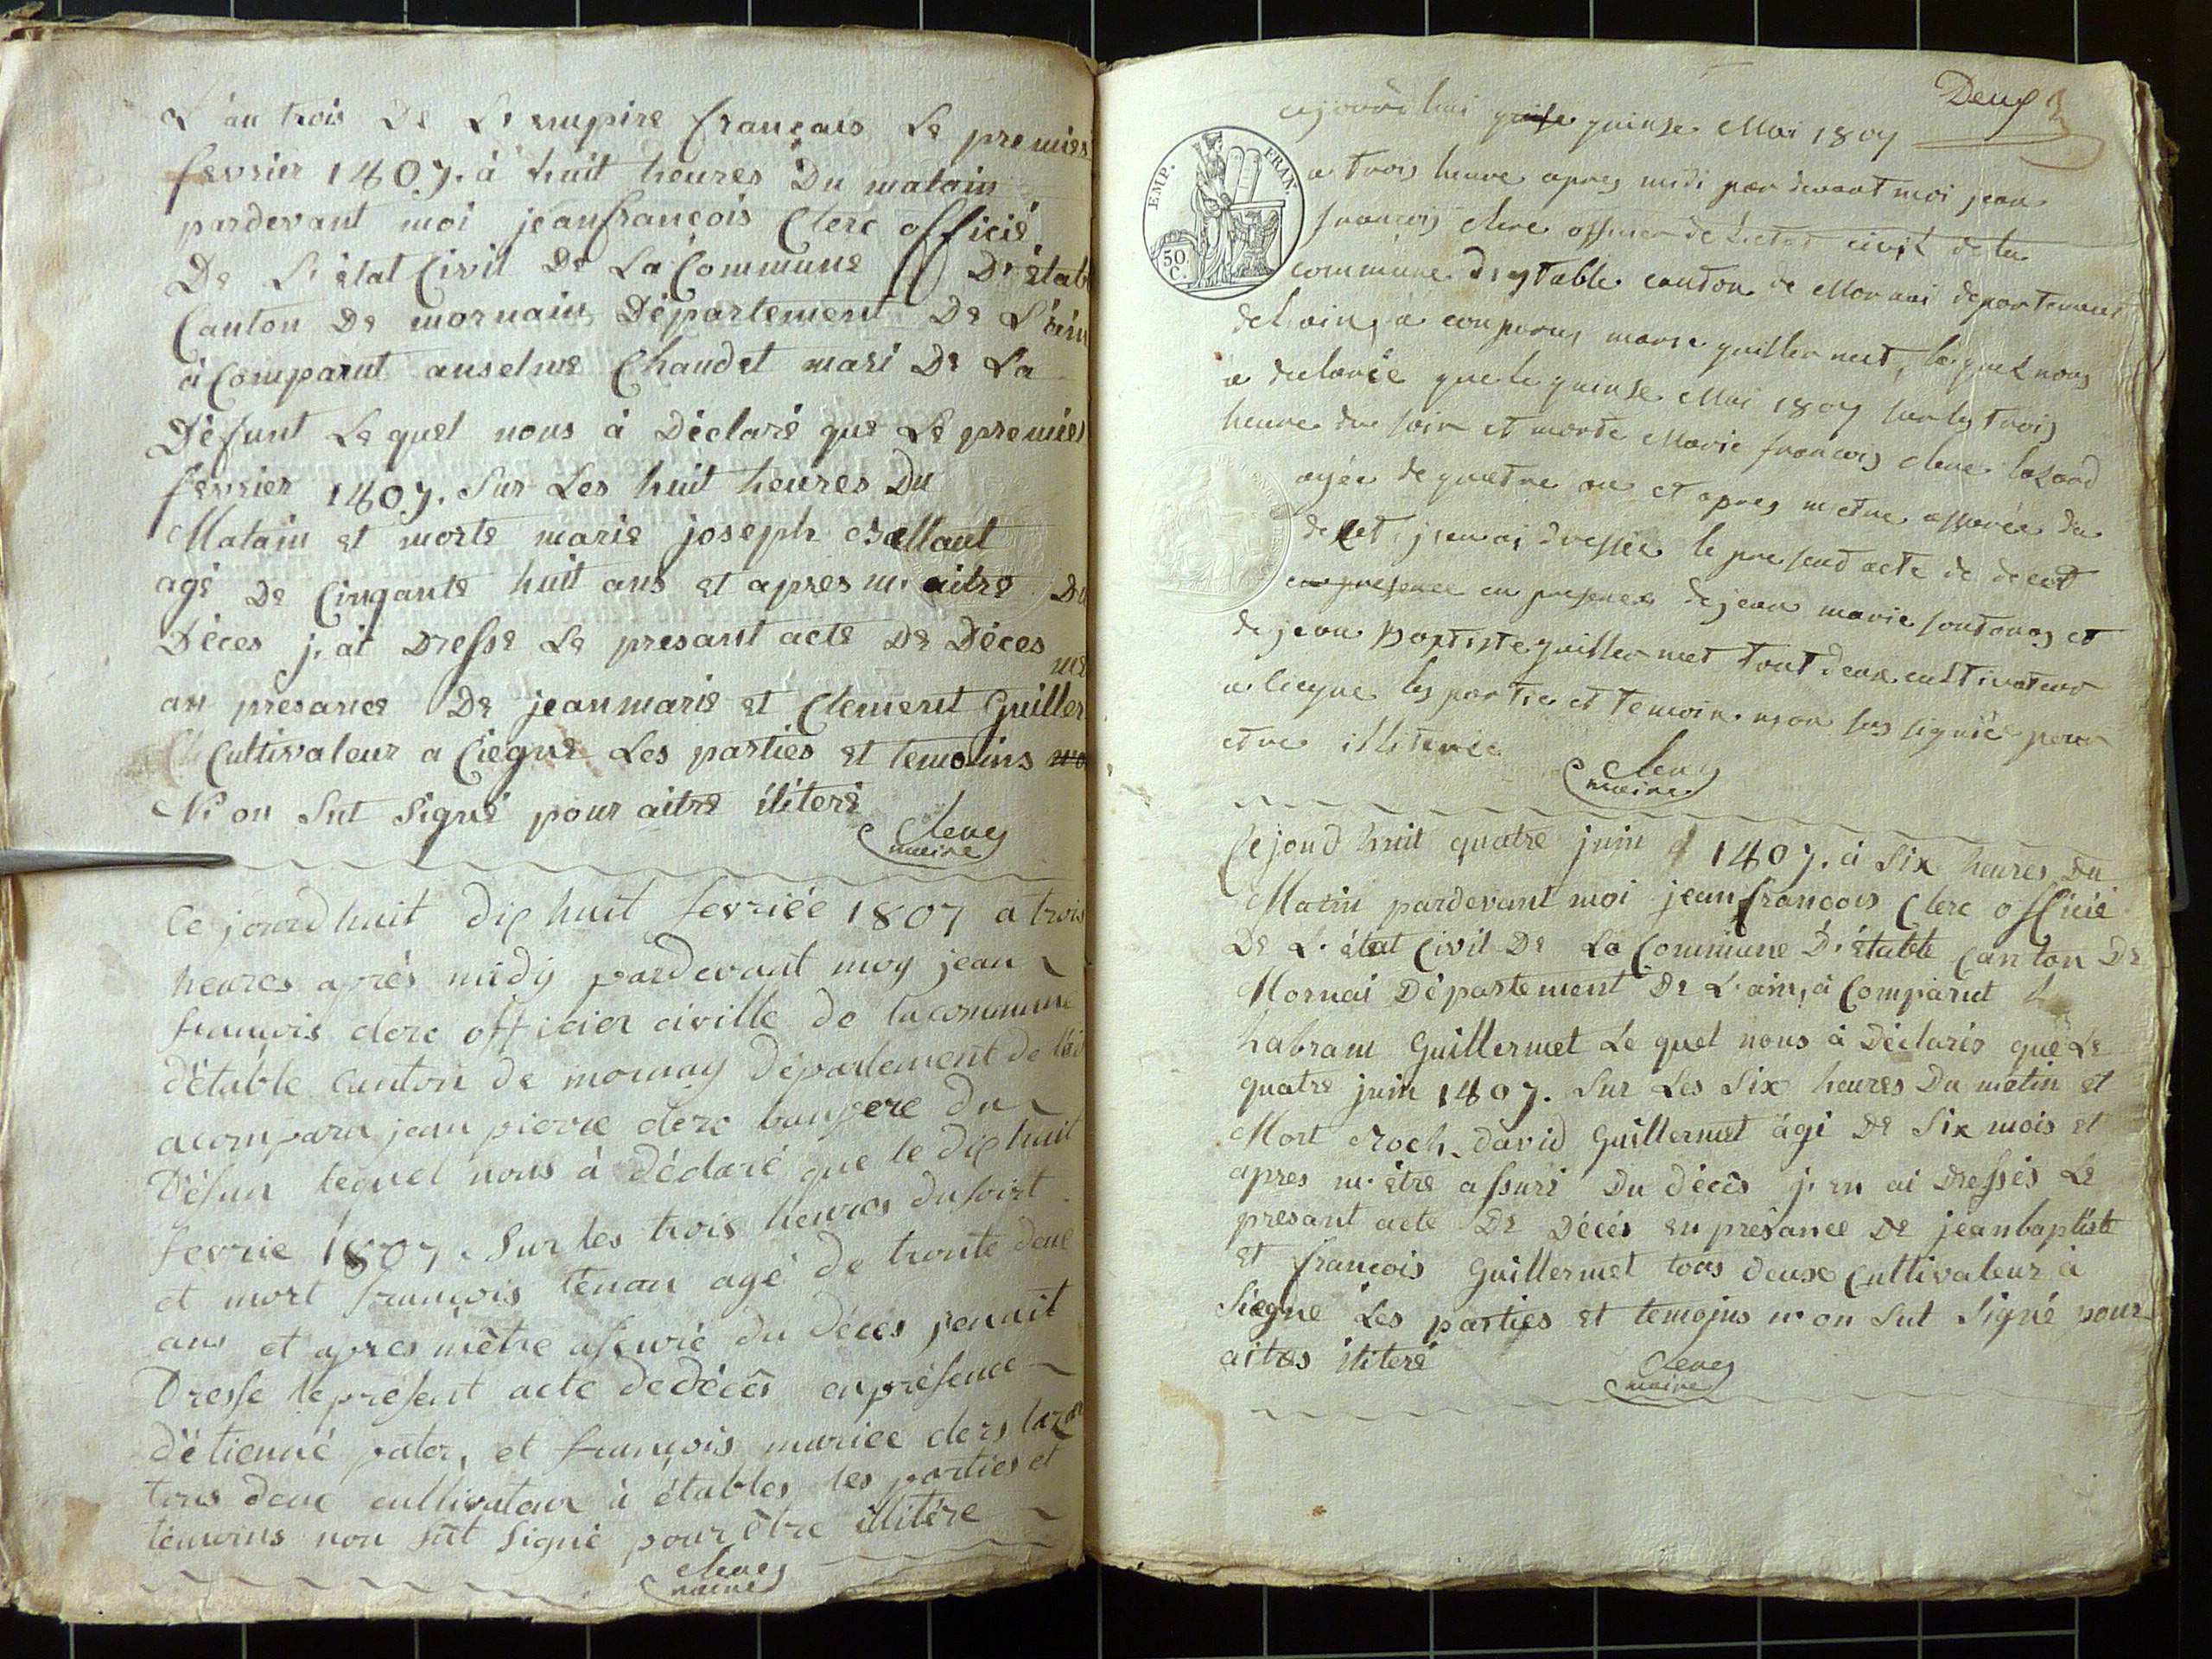 L'an trois De L'empire français Le premier
fevrier 1807. à huit heures Du matain
pardevant moi jeanfrançois Clerc officié
De L'état Civil De La Commune D'étab
Canton De mornain Département De L'ain
à Comparut anselme Chaudet mari De La
Défunt Le quel nous à Déclaré que Le premier
fevrier 1807. Sur Les huit heures Du
Matain et morte marie joseph
agé De Cinqante huit ans et apres m'aitre Du
Déces j'ai Dressé Le presant acte De Déces
an presance De jeanmarie et Clement Guiller
met
Cultivateur a Ciegne Les parties et temoins
N'on Sut Signé pour aitre iliteré
Clerc
maire
Ce jourd huit dix huit fevriée 1807 a trois
heures aprés midy pardevant moy jean
françois clerc officier civille de la commune
d'étable Canton de mornay Département de l'ain
acomparu jean pierre clerc baupere du
Défun lequel nous à déclaré que le dix huit
fevrie 1807. Sur les trois heures du soirt
et mort françois tenan agé de trente deux
ans et apres métre assurié du Déces jenait
Dresse le présent acte de décês en présence
d'étienne pater, et françois mariee clers lazar
tous deux cultivateur à étables les parties et
témoins non sût signé pour être illitére
Clerc
maire
Deux 2
cejourd hui quise quinse Mai 1807
a trois heure apres midi par devant moi jean
francois clerc officier de l'etat civil de la
commune detable canton de Mornai departement
delain, a comparus marie guillermet, lequel nous
a declarée que le quinse Mai 1807 sur les trois
heure du soir et morte Marie francois clerc lasard
agée de quatre an et apres metre assurée du
decet jenai dressée le present acte de decet
en presence en presence de jean marie et
de jean Baptiste guillermet tout deux cultivateur
a ciegne les partie et temoin non sus signée pour
etre illiterée
Clerc
maire
Ce jourd huit quatre juin 1807. à Six heures Du
Matin pardevant moi jean francois Clerc officié
De L'état Civil De La Commune D'étable Canton De
Mornai Département De L'ain, à Comparut
habram Guillermet Le quel nous à Déclarés que Le
quatre juin 1807. Sur Les Six heures Du matin et
Mort Roch David Guillermet âgé De Six mois et
apres m'être assuré Du décês j'en ai Dressés Le
presant acte De Décés en présance De jeanbaptiste
Et francois Guillermet tous deux Cultivateur à
Siegne Les parties et temoins n'on Sut Signé pour
aitres iliteré
Clerc
maire
EMP. FRAN.
50
C.